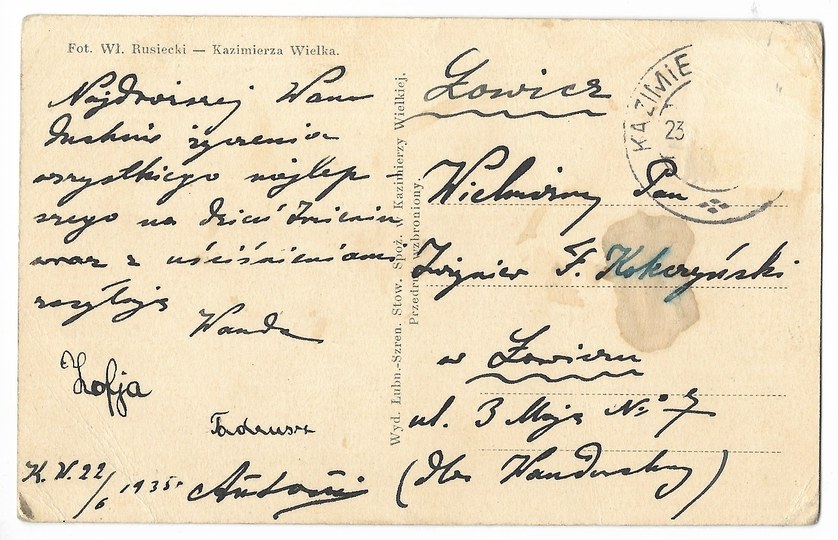 Fot. Wł. Rusiecki — Kazimierza Wielka.
Najdroższej Wan
duchnie życzenia
wszystkiego najlep-
szego na dzień Imienin
wraz z uściśnieniami
zasyłają
Wanda
Zofja
Tadeusz
K. W. 22/6 1935 r Antoni
Wyd. Lubn.-Szren. Stow. Spoż. w Kazimierzy Wielkiej.
Przedruk wzbroniony.
KAZIMIE
23
Łowicz
Wielmożny Pan
Zbigniew F. Kokczyński
w Łowiczu
ul. 3 Maja No 7
(dla Wanduchny)